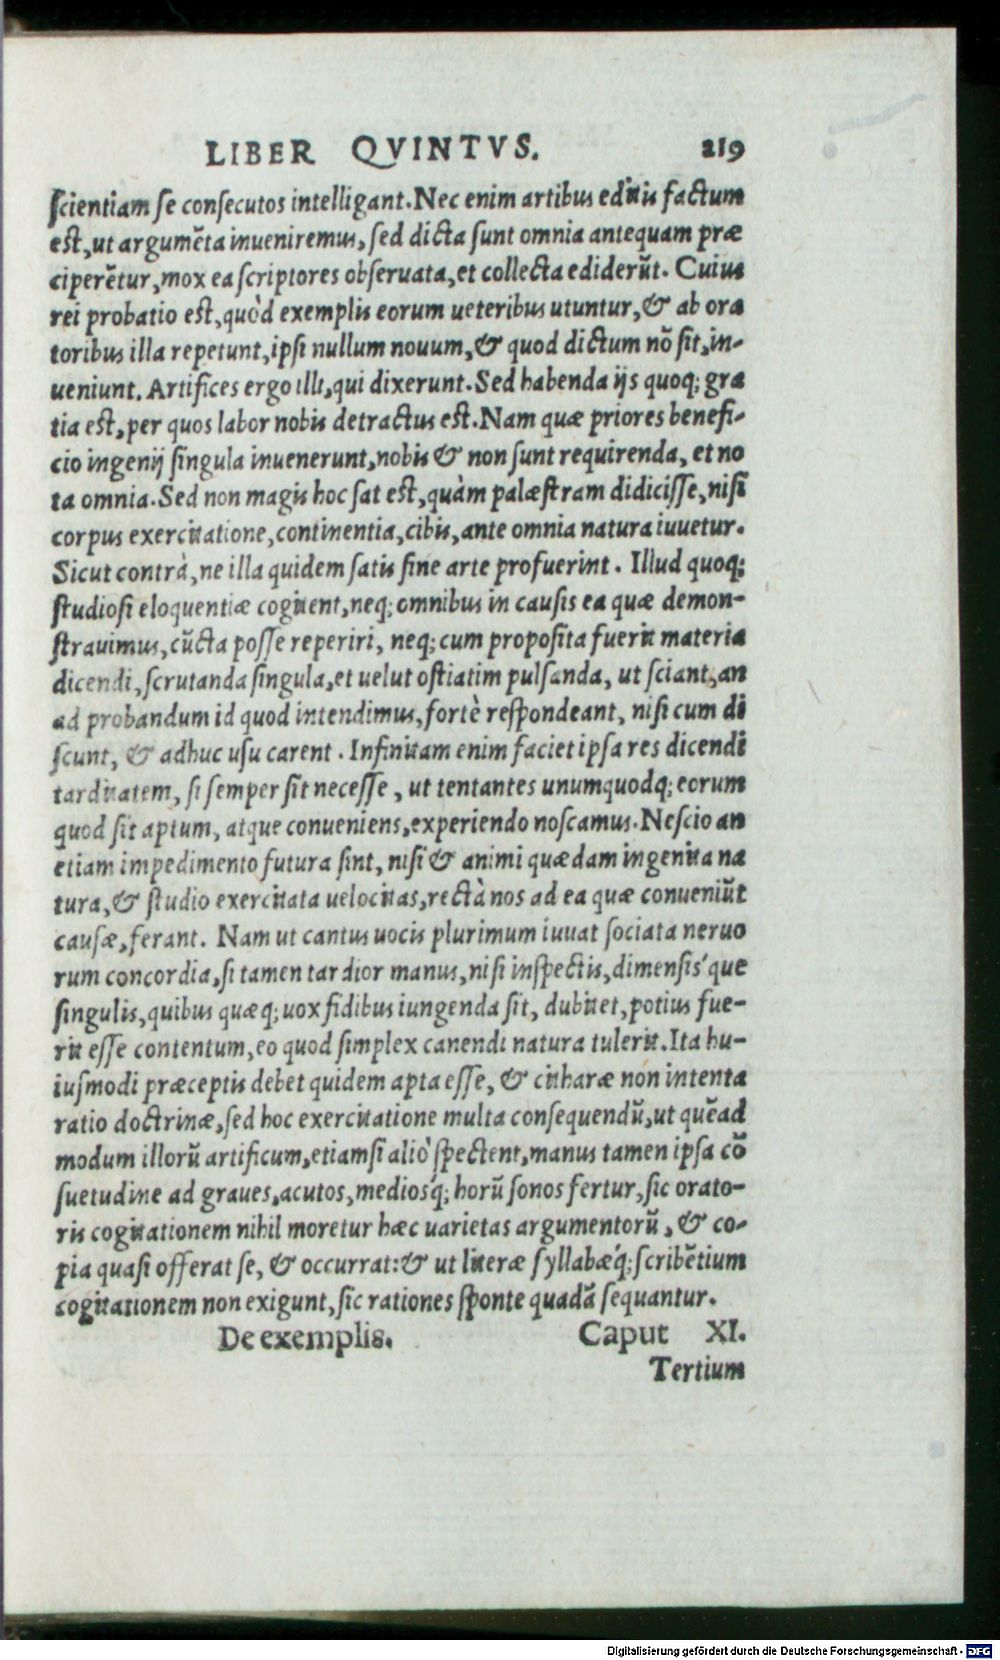 LIBER QVINTVS. 219
ſcientiam ſe conſecutos intelligant. Nec enim artibus editis factum
est, ut argumẽta inueniremus, ſed dicta ſunt omnia antequam præ
ciperẽtur, mox ea ſcriptores obſeruata, et collecta ediderũt. Cuius
rei probatio est, quòd exemplis eorum ueteribus utuntur, & ab ora
toribus illa repetunt, ipſi nullum nouum, & quod dictum nõ ſit, in-
ueniunt. Artifices ergo illi, qui dixerunt. Sed habenda ijs quoq; gra
tia est, per quos labor nobis detractus est. Nam quæ priores benefi-
cio ingenij ſingula inuenerunt, nobis & non ſunt requirenda, et no
ta omnia. Sed non magis hoc ſat est, quàm palæstram didiciſſe, niſi
corpus exercitatione, continentia, cibis, ante omnia natura iuuetur.
Sicut contrà, ne illa quidem ſatis ſine arte profuerint. Illud quoq;
ſtudioſi eloquentiæ cogitent, neq; omnibus in cauſis ea quæ demon-
ſtrauimus, cũcta poſſe reperiri, neq; cum propoſita fuerit materia
dicendi, ſcrutanda ſingula, et uelut oſtiatim pulſanda, ut ſciant, an
ad probandum id quod intendimus, fortè reſpondeant, niſi cum di
ſcunt, & adhuc uſu carent. Infinitam enim faciet ipſa res dicendi
tarditatem, ſi ſemper ſit neceſſe, ut tentantes unumquodq; eorum
quod ſit aptum, atque conueniens, experiendo noſcamus. Neſcio an
etiam impedimento futura ſint, niſi & animi quædam ingenita na
tura, & ſtudio exercitata uelocitas, rectà nos ad ea quæ conueniũt
cauſæ, ferant. Nam ut cantus uocis plurimum iuuat ſociata neruo
rum concordia, ſi tamen tardior manus, niſi inſpectis, dimenſis'que
ſingulis, quibus quæq; uox fidibus iungenda ſit, dubitet, potius fue-
rit eſſe contentum, eo quod ſimplex canendi natura tulerit. Ita hu-
iuſmodi præceptis debet quidem apta eſſe, & citharæ non intenta
ratio doctrinæ, ſed hoc exercitatione multa conſequendũ, ut quẽad
modum illorũ artificum, etiamſi aliò ſpectent, manus tamen ipſa cõ
ſuetudine ad graues, acutos, medios'q; horũ ſonos fertur, ſic orato-
ris cogitationem nihil moretur hæc uarietas argumentorũ, & co-
pia quaſi offerat ſe, & occurrat: & ut literæ ſyllabæ'q; ſcribẽtium
cogitationem non exigunt, ſic rationes ſponte quadã ſequantur.
De exemplis. Caput XI.
Tertium
Digitalisierung gefördert durch die Deutsche Forschungsgemeinschaft - DFG